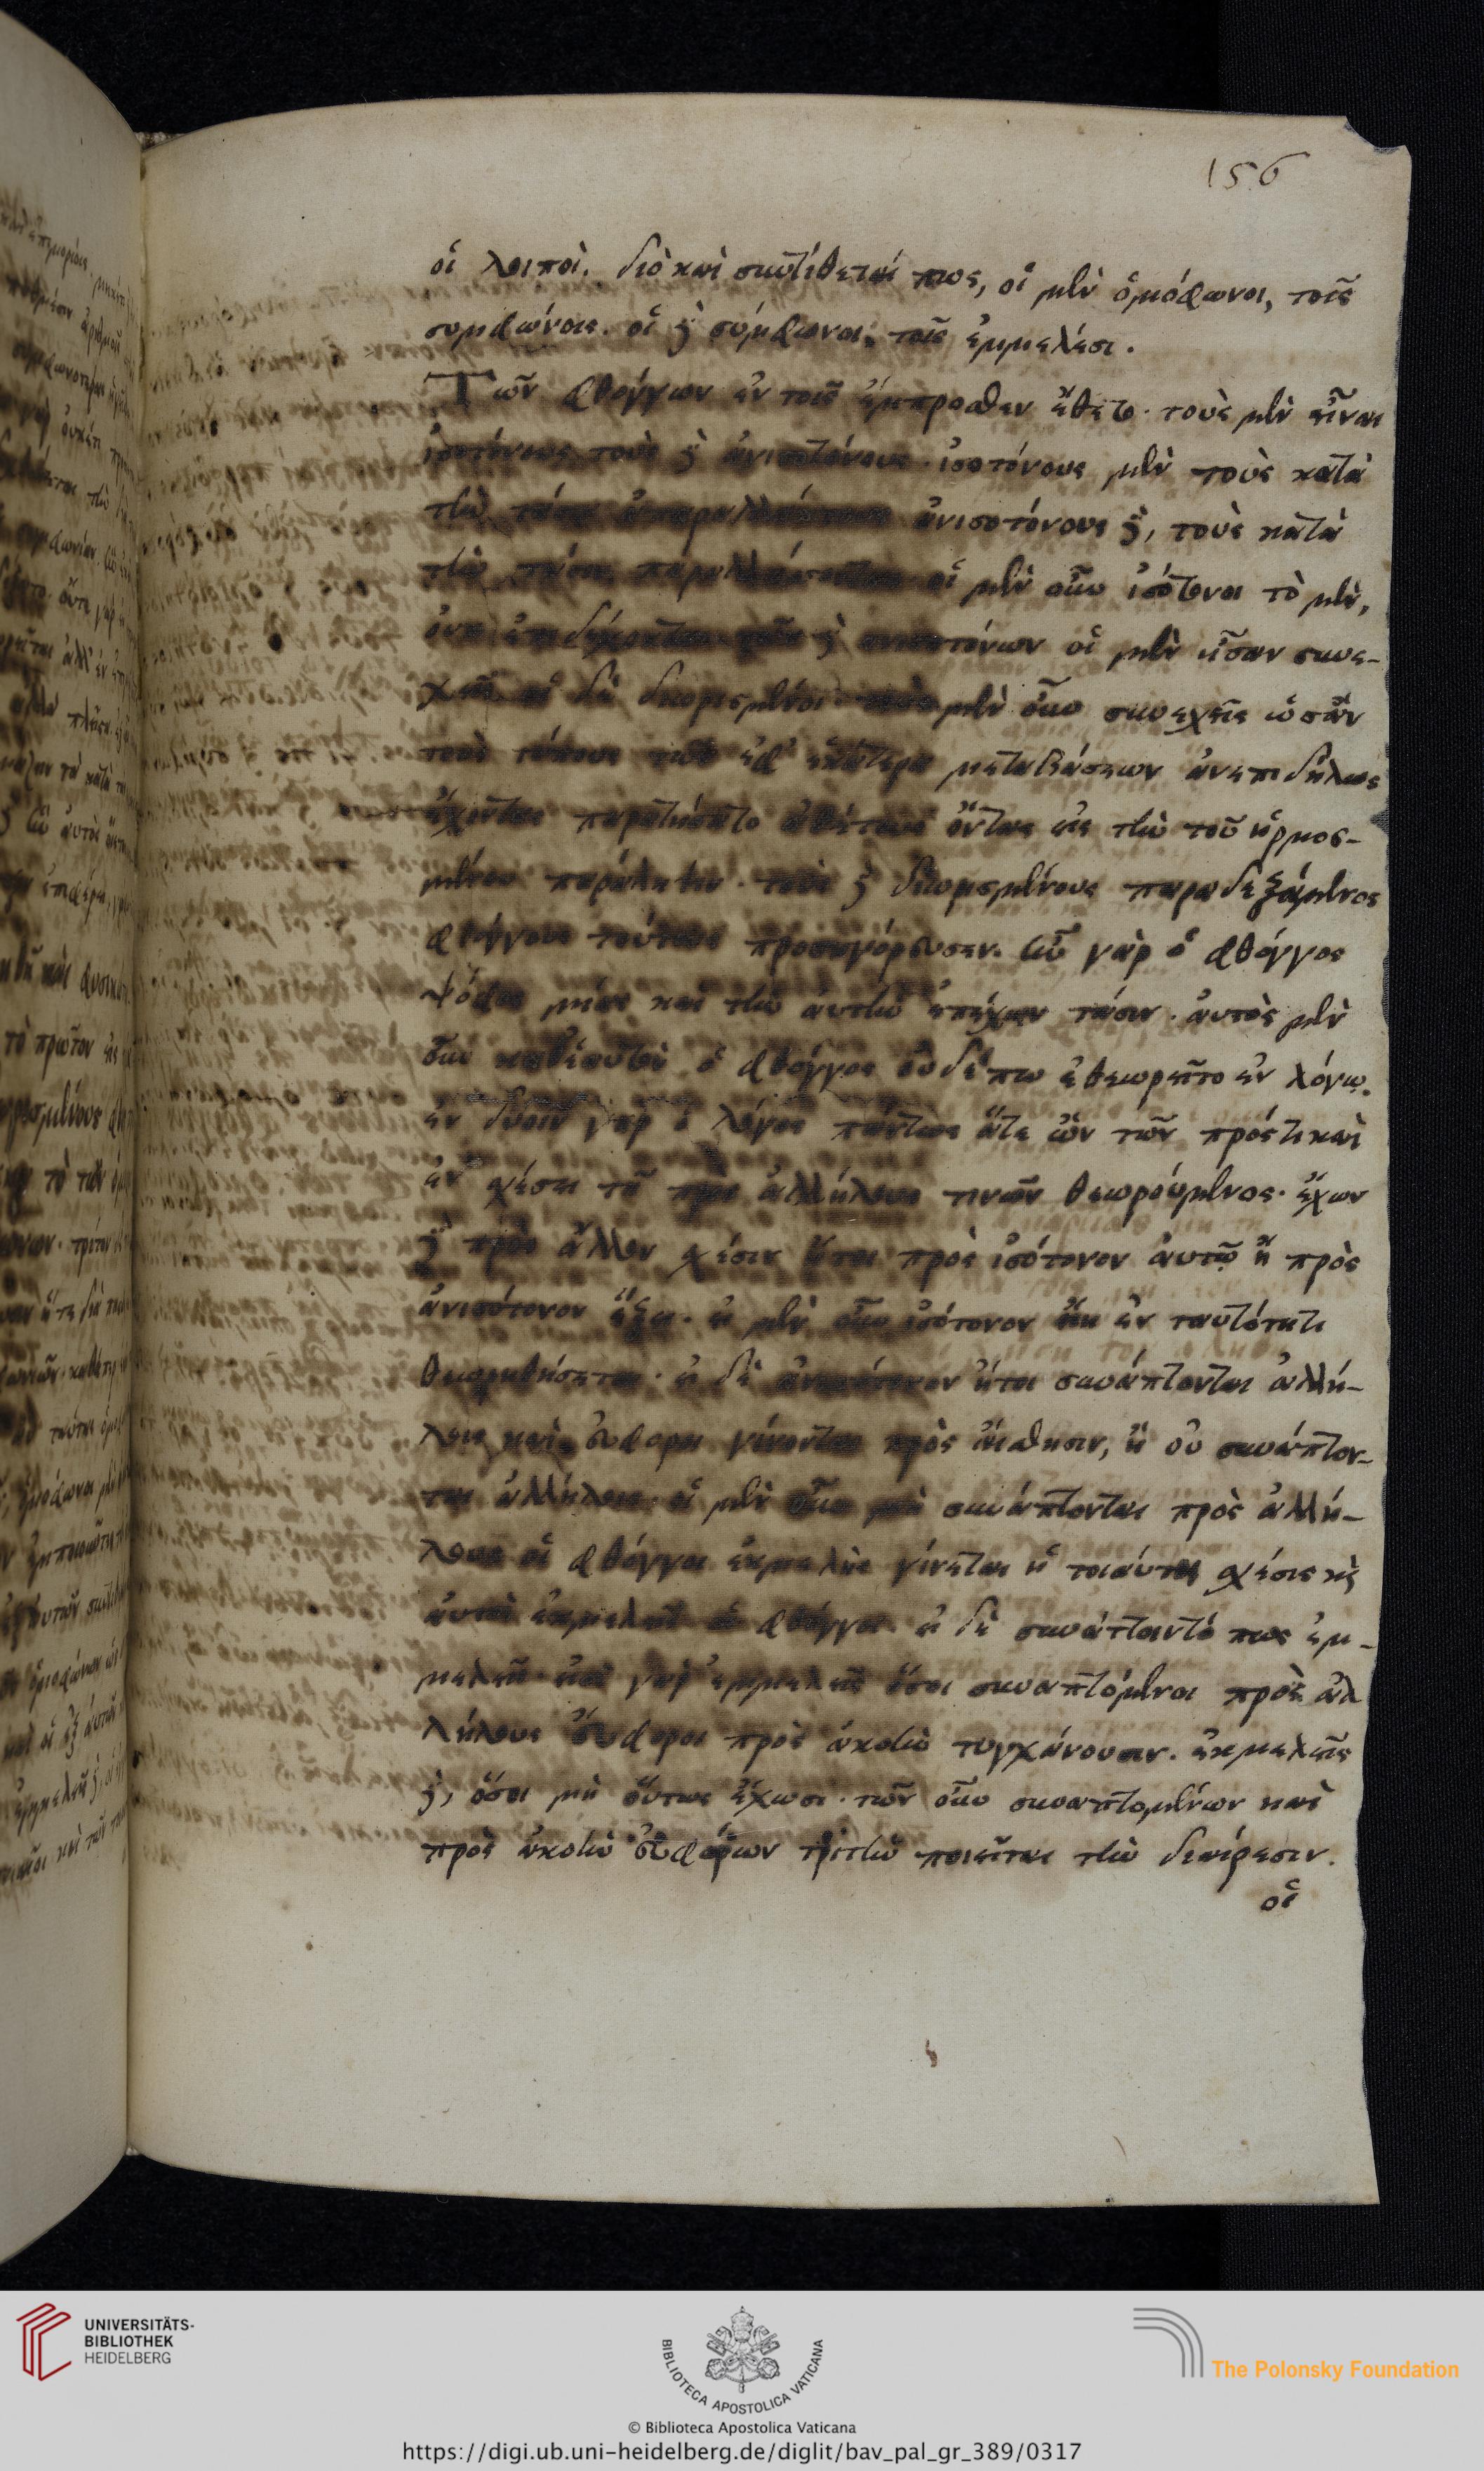 156
οἱ λοιποί. διὸ καὶ συντίθεταί πως, οἱ μὲν ὁμόφωνοι, τοῖς
συμφώνοις. οἱ δὲ σύμφωνοι, τοῖς ἐμμελέσι.
Τῶν φθόγγων ἐν τοῖς ἔμπροσθεν ἔθετο. τοὺς μὲν εἶναι
ἰσοτόνους τοὺς δὲ ἀνισοτόνους. ἰσοτόνους μὲν τοὺς κατὰ
τὴν τάσιν ἀπαραλλάκτους ἀνισοτόνους δὲ, τοὺς κατὰ
τὴν τάσιν παραλλάσσοντας οἱ μὲν οὖν ἰσότονοι τὸ μὲν,
οὐκ ἐπιδέχονται τῶν δὲ ἀνισοτόνων οἱ μὲν ἦσαν συνε-
χεῖς οἱ δὲ διωρισμένοι τοὺς μὲν οὖν συνεχεῖς ὡσὰν
τοὺς τόπους τῶν ἐφ' ἑκάτερα μεταβάσεων ἀνεπιδήλως
ἔχοντας παρῃτήσατο ἀθέτους ὄντας εἰς τὴν τοῦ ἡρμοσ-
μένου παράληψιν. τοὺς δὲ διωρισμένους παραδεξάμενος
φθόγγους τούτους προσηγόρευσεν. ἦν γὰρ ὁ φθόγγος
ψόφος μίαν καὶ τὴν αὐτὴν ἐπέχων τάσιν. αὐτὸς μὲν
οὖν καθ' ἑαυτὸν ὁ φθόγγος οὐδέπω ἐθεωρεῖτο ἐν λόγῳ.
ἐν δυσὶν γὰρ ὁ λόγος πάντως ἅτε ὢν τῶν πρός τι καὶ
ἐν σχέσει τῇ πρὸς ἀλλήλους τινῶν θεωρούμενος. ἔχων
δὲ πρὸς ἄλλον σχέσιν ἤτοι πρὸς ἰσότονον αὐτῷ ἢ πρὸς
ἀνισότονον ἕξει. εἰ μὲν οὖν ἰσότονον ἐν ταυτότητι
θεωρηθήσεται. εἰ δὲ ἀνισότονον ἤτοι συνάπτονται ἀλλή-
λοις καὶ εὔφοροι γίνονται πρὸς αἴσθησιν, ἢ οὐ συνάπτον-
ται ἀλλήλοις. εἰ μὲν οὖν μὴ συνάπτονται πρὸς ἀλλή-
λους οἱ φθόγγοι ἐκμελὴς γίνεται ἡ τοιαύτη σχέσις καὶ
αὐτοὶ ἐκμελεῖς οἱ φθόγγοι εἰ δὲ συνάπτοιντό πως ἐμ-
μελεῖς εἰσὶ γὰρ ἐμμελεῖς ὅσοι συναπτόμενοι πρὸς ἀλ
λήλους εὔφοροι πρὸς ἀκοὴν τυγχάνουσιν. ἐκμελεῖς
δὲ, ὅσοι μὴ οὕτως ἔχωσι. τῶν οὖν συναπτομένων καὶ
πρὸς ἀκοὴν εὐφόρων τριττὴν ποιεῖται τὴν διαίρεσιν.
οἱ
UNIVERSITÄTS-
BIBLIOTHEK
HEIDELBERG
BIBLIOTECA APOSTOLICA VATICANA
The Polonsky Foundation
© Biblioteca Apostolica Vaticana
https://digi.ub.uni-heidelberg.de/diglit/bav_pal_gr_389/0317